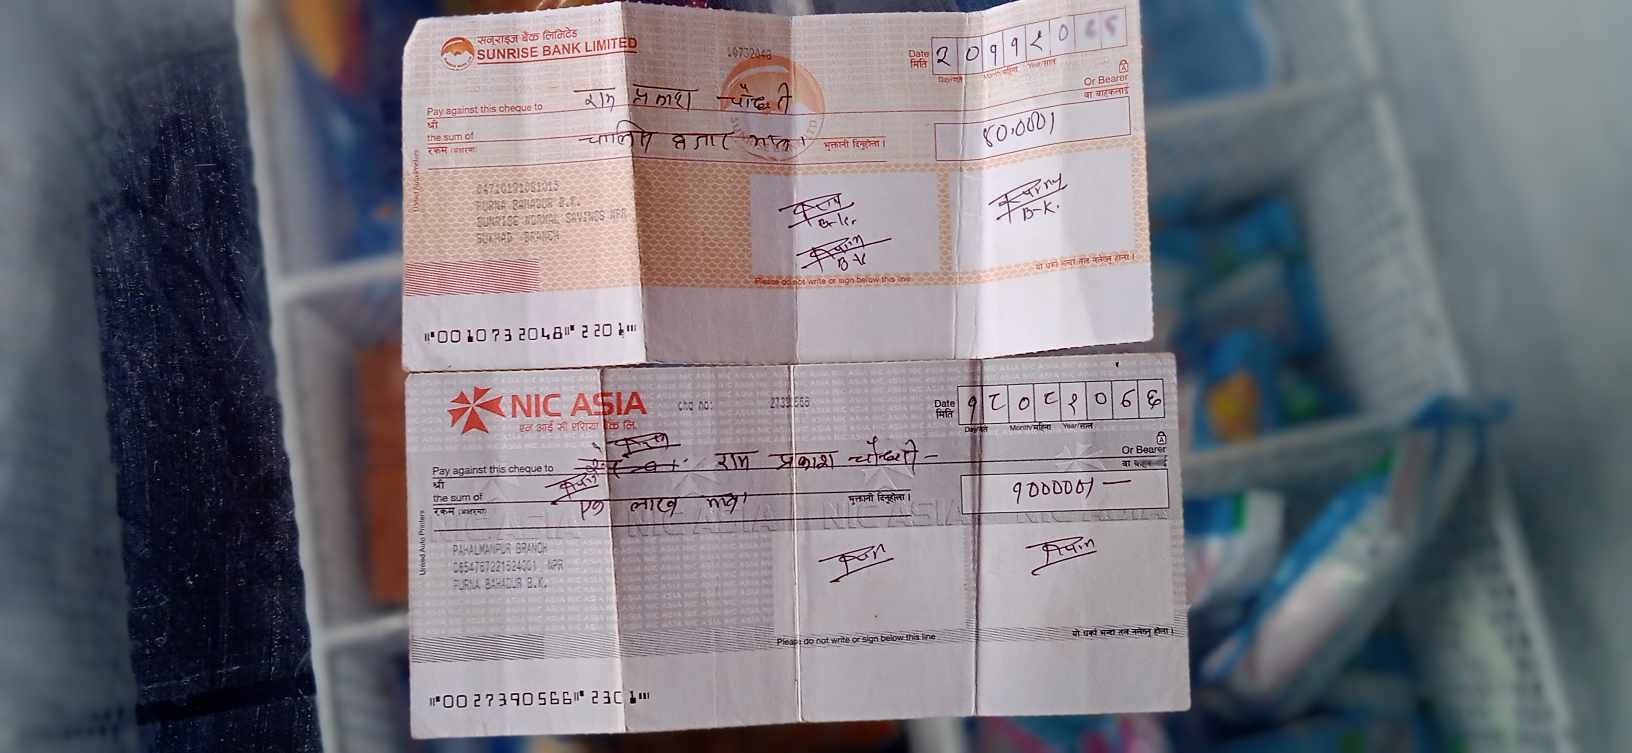 सनराइज बैंक लिमिटेड
SUNRISE BANK LIMITED
10732048
Date
मिति
Month/महिना Year/साल
Or Bearer
वा वाहकलाई
Pay against this cheque to
श्री
राम प्रकाश चौधरी
the sum of
रकम (अक्षरमा)
चालिस हजार मात्र।
भुक्तानी दिनुहोला।
80,000/
04710191081015
PURNA BAHADUR B.K.
SUNRISE NORMAL SAVINGS NPR
SUKHAD BRANCH
B.K.
B.K.
B-K.
Please do not write or sign below this line
यो धर्का भन्दा तल नलेख्नु होला।
⑈0010732048⑈ 2201⑈
NIC ASIA
एन आई सी एशिया बैंक लि.
Chq no:
Date
मिति
१८०८२०७६
Day/गते Month/महिना Year/साल
Or Bearer
वा वाहकलाई
Pay against this cheque to
श्री
राम प्रकाश चौधरी -
the sum of
रकम (अक्षरमा)
एक लाख मात्र।
भुक्तानी दिनुहोला।
१०००००/-
PAHALMANPUR BRANCH
NPR
PURNA BAHADUR B.K.
Please do not write or sign below this line
यो धर्का भन्दा तल नलेख्नु होला।
⑈0027390566⑈ 2301⑈